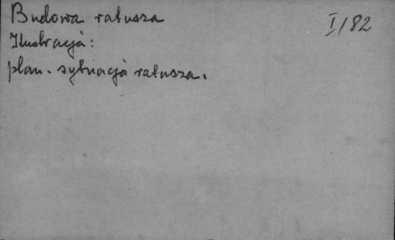 Budowa ratusza I/82
Ilustracja:
plan. sytuacja ratusza.